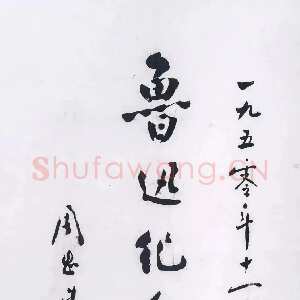 一九五零年十一
鲁迅纪
周恩
Shufawang.CN